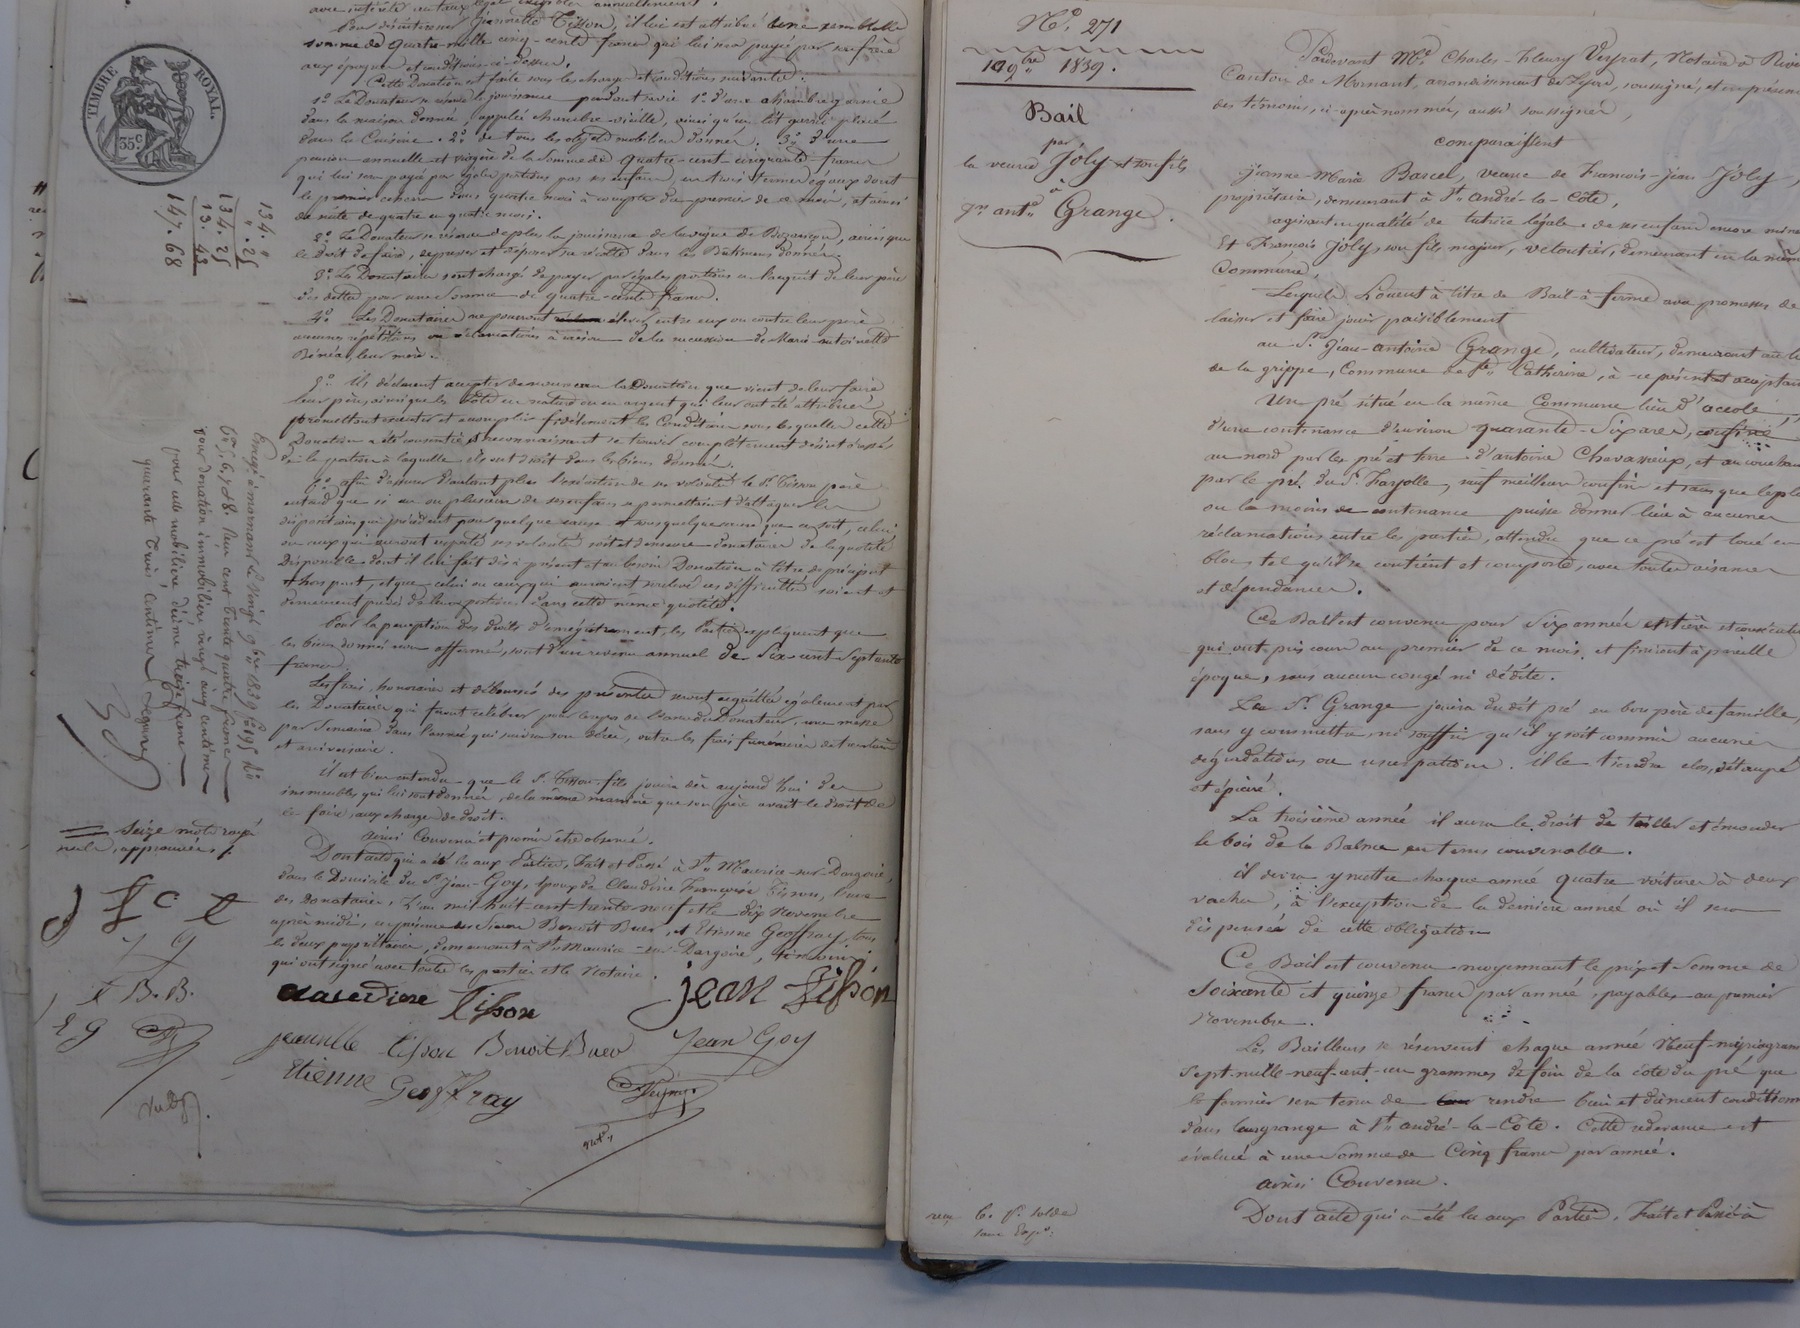 avec intérêt au taux légal exigible annuellement.
Jeannette Tisson, il lui est attribué une semblable
somme de quatre-mille cinq-cents francs qui lui sera payée par son frère
aux époques et conditions ci-dessus.
Cette Donation est faite sous les charges et conditions suivantes.
1o. Le Donateur se réserve la jouissance pendant sa vie 1o. d'une chambre garnie
dans la maison donnée, appelée chambre-vieille, ainsi qu'un lit garni placé
dans la Cuisine. 2o. de tous les objets mobiliers donnés. 3o. d'une
pension annuelle et viagère de la somme de quatre-cent cinquante francs
qui lui sera payée par égales portions par ses enfans, en trois termes égaux dont
le premier écherra dans quatre mois à compter du premier de ce mois, et ainsi
de suite de quatre en quatre mois.
2o. Le Donateur se réserve de plus la jouissance de la vigne de ainsi que
le droit de faire, déposer et sa récolte dans les Bâtimens donnés.
3o. Les Donataires sont chargés de payer par égales portions en l'acquit de leur père
des dettes pour une somme de quatre-cents francs.
4o. Les Donataires ne pourront élever, entre eux ou contre leur père
aucunes répétitions ou réclamations à raison de la succession de Marie-antoinette
leur mère.
5o. Ils déclarent accepter la Donation que vient de leur faire
leur père, ainsi que les lots en nature ou en argent qui leur ont été attribués
promettant exécuter et accomplir fidèlement les Conditions sous lesquelles cette
Donation a été consentie et reconnaissant se trouver complètement
de la portion à laquelle ils ont droit dans les biens donnés.
6o. afin d'assurer d'autant plus l'exécution de ses volontés le Sr. Tisson père
entend que si un ou plusieurs de ses enfans se permettaient d'attaquer les
dispositions qui précèdent pour quelque cause et sous quelque raison que ce soit, celui
ou ceux qui auront respecté ses volontés soit et demeure donataire de la quotité
disponible dont il lui fait dès à présent et au besoin Donation à titre de préciput
et hors part, et que celui ou ceux qui auraient soulevé ces difficultés soient et
demeurent privés de leurs portions dans cette même quotité.
Pour la perception des droits d'enregistrement, les Parties expliquent que
les biens donnés non affermés, sont d'un revenu annuel de Six-cent Septante
francs.
Les frais, honoraires et déboursés des présentes seront acquittés également par
les Donataires qui feront célébrer pour le repos de l'âme du Donateur, une messe
par Semaine dans l'année qui suivra son décès, outre les frais funéraires de
et anniversaire.
il est bien entendu que le Sr. Tisson fils jouira dès aujourd'hui des
immeubles qui lui sont donnés, de la même manière que son père avait le droit de
le faire, aux charges de droit.
ainsi Convenu et promis être observé.
Dont acte qui a été lu aux Parties, Fait et Passé à St. Maurice-sur-Dargoire,
dans le Domicile du Sr. Jean Goy, époux de Claudine Françoise Tisson, l'une
des donataires, L'an mil huit-cent-trente-neuf et le dix novembre
après midi, en présence des Sieurs Benoit Buer, et Etienne Geoffray, tous
les deux propriétaires, demeurant à St. Maurice-sur-Dargoire, témoins
qui ont signé avec toutes les parties et le Notaire.
claudine Tisson
jean Tisson
jeannette tisson Benoit Buer Jean Goy
Etienne Geoffray
Veyrat
Not.
TIMBRE ROYAL
35c
134. "
". 25
134. 25
13. 43
147. 68
Enregé. à mornant le vingt 9bre 1839 fo. 195 Ro
Cs. 5, 6, 7 et 8. Reçu cent trente quatre francs
pour donation immobilière vingt cinq centimes
pour idem mobilière, dixième treize francs
quarante trois centimes
seize mots rayés
nuls, approuvés.
J G
B.B.
E G
No. 271
10 9bre 1839.
Bail
par
la veuve Joly et son fils
à
Jn. antne. Grange.
Pardevant Me. Charles-Fleury Veyrat, Notaire à Rive
Canton de Mornant, arrondissement de Lyon, soussigné, et en présen
des témoins, ci-après nommés, aussi soussignés,
comparaissent
Jeanne-Marie Barcel, veuve de François-Jean Joly,
propriétaire, demeurant à St. André-la-Côte,
agissant en qualité de tutrice légale de ses enfans encore mine
Et François Joly, son fils majeur, veloutier, demeurant en la même
Commune,
Lesquels Louent à titre de Bail-à-ferme avec promesses de
laisser et faire jouir paisiblement
au Sr. Jean-antoine Grange, cultivateur, demeurant au
de la grippe, Commune de Ste. Catherine, à ce présent et acceptant
Un pré situé en la même Commune lieu d'accolé,
d'une contenance d'environ quarante-six ares, confiné
au nord par les pré et terre d'antoine Chavassieux, et au couchant
par le pré du Sr. Fayolle, sauf meilleurs confins et sans que le plus
ou le moins de contenance puisse donner lieu à aucunes
réclamations entre les parties, attendu que ce pré est loué en
bloc, tel qu'il se contient et comporte, avec toutes aisances
et dépendances.
Ce Bail est convenu pour Six années entières et consécutives
qui ont pris cours au premier de ce mois, et finiront à pareille
époque, sans aucun congé ni dédite.
Le Sr. Grange jouira dudit pré en bon père de famille,
sans y commettre, ni souffrir qu'il y soit commis aucunes
dégradations ou usurpations. il le tiendra clos, détaupé
et épierré.
La troisième année il aura le droit de tailler et émonder
le bois de la Balme en tems convenable.
il devra y mettre chaque année quatre voitures à deux
vaches, à l'exception de la dernière année où il sera
dispensé de cette obligation
Ce Bail est convenu moyennant le prix et Somme de
Soixante et quinze francs par année, payables au premier
novembre.
Les Bailleurs se réservent chaque année Neuf-myriagramme
Sept-mille-neuf-cent-un grammes de foin de la côte du pré que
le fermier sera tenu de rendre bien et dûment conditionné
dans leur grange à St. André-la-Côte. Cette redevance est
évaluée à une Somme de Cinq francs par année.
ainsi Convenu.
Dont acte qui a été lu aux Parties, Fait et Passé à
reçu 6. f. solde
sauf Expon.